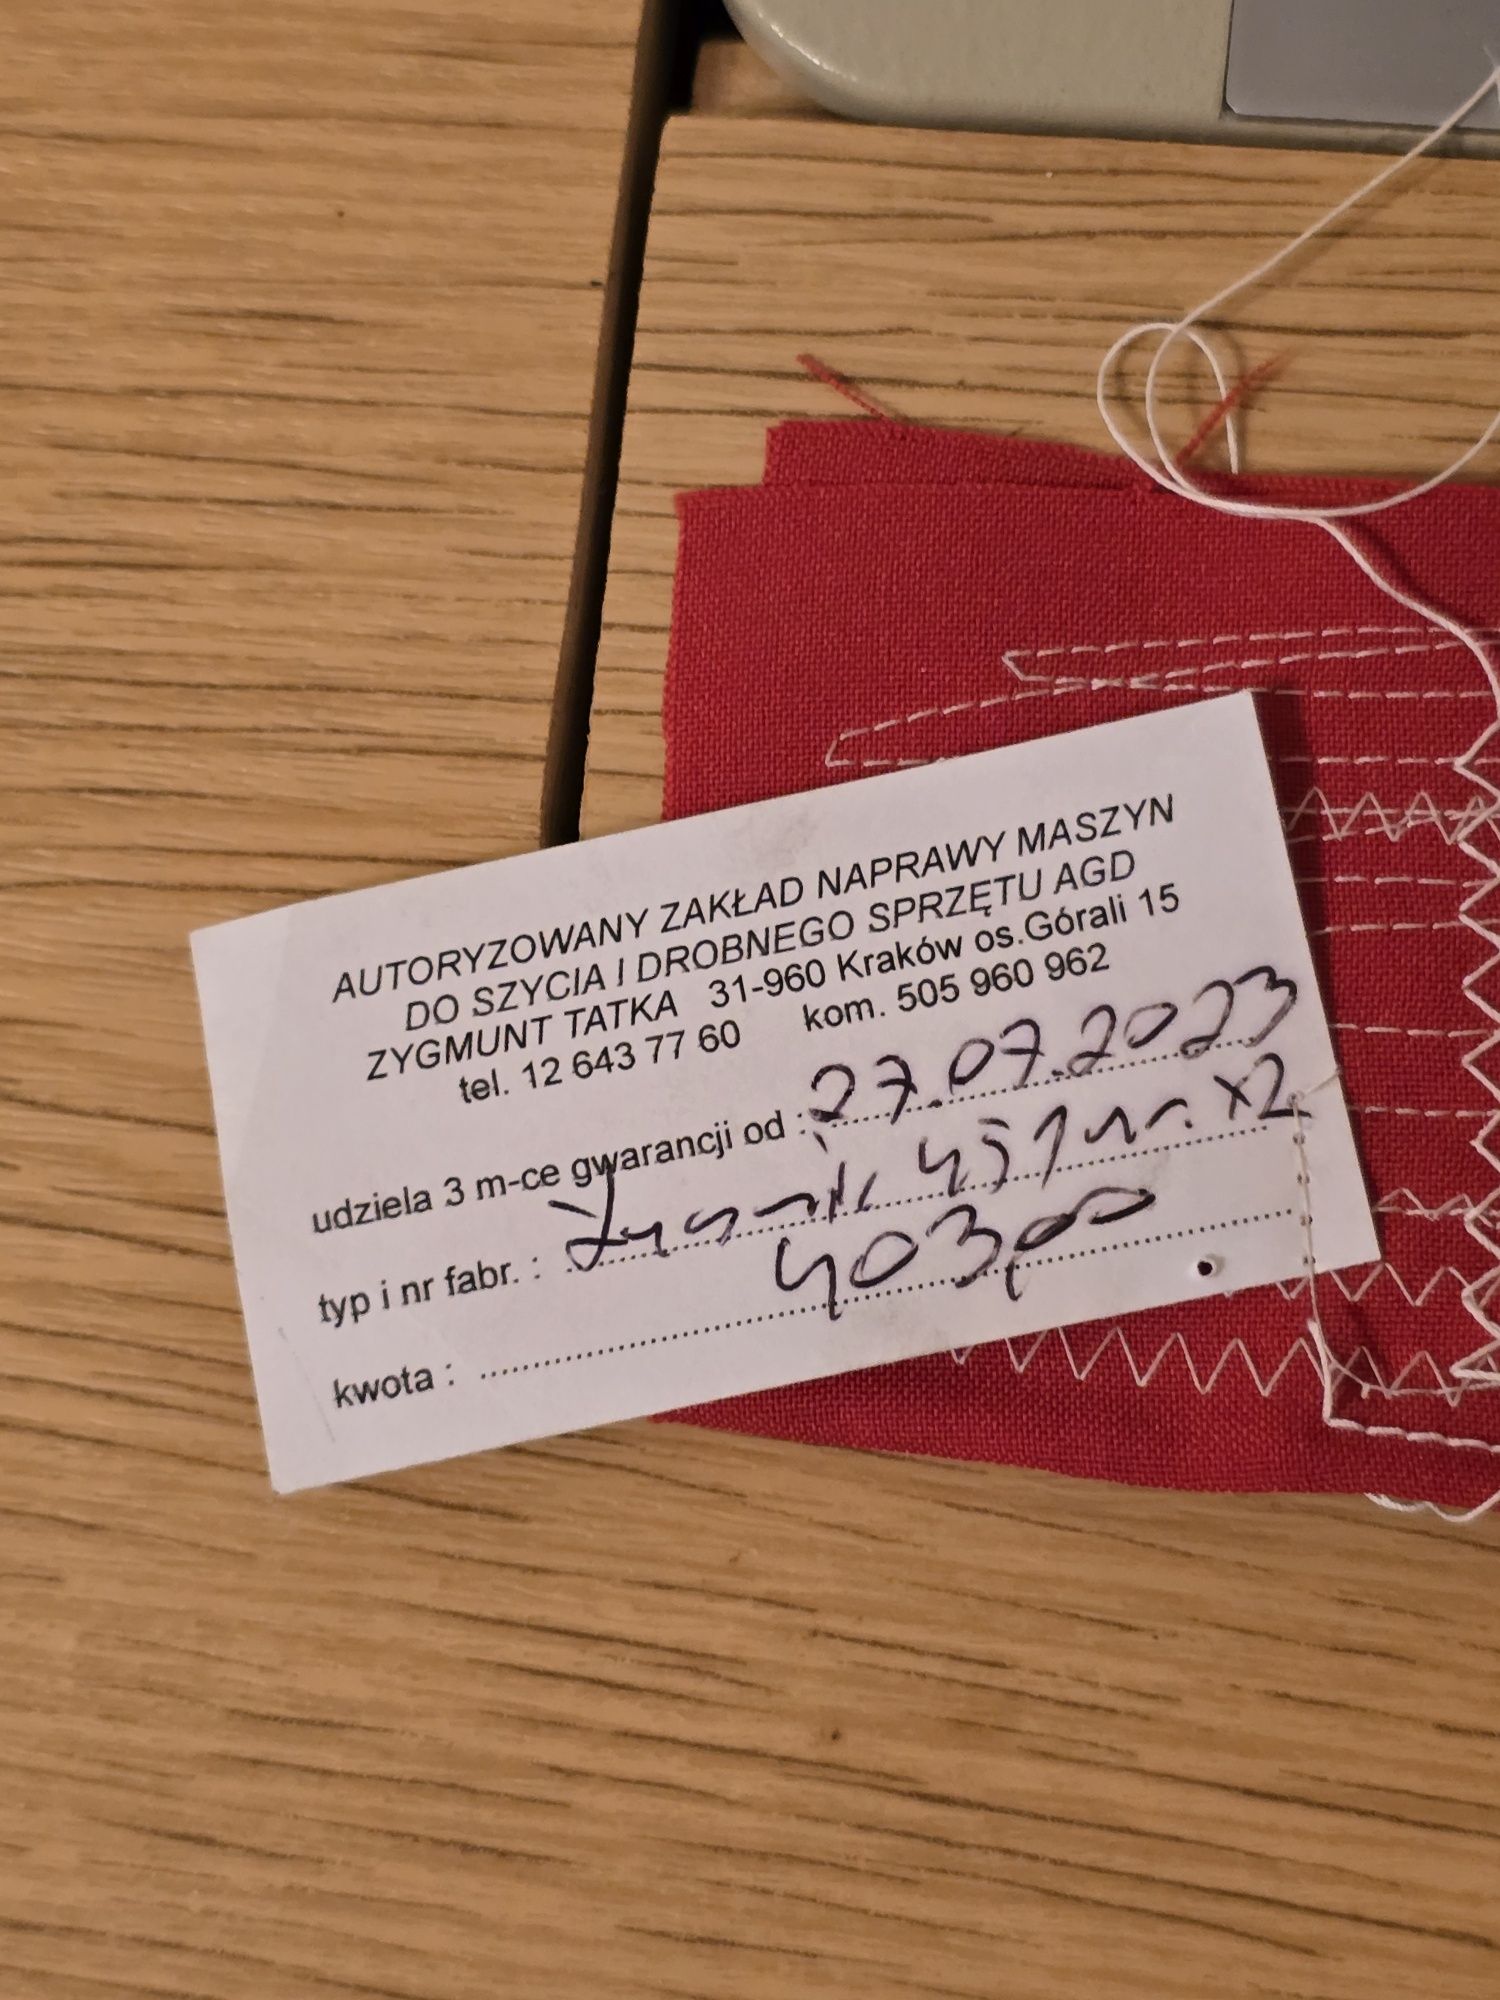 AUTORYZOWANY ZAKŁAD NAPRAWY MASZYN
DO SZYCIA I DROBNEGO SPRZĘTU AGD
ZYGMUNT TATKA 31-960 Kraków os.Górali 15
tel. 12 643 77 60 kom. 505 960 962
udziela 3 m-ce gwarancji od : 27.07.2023
typ i nr fabr. : Łucznik 451 nr. x2
kwota : 403,00